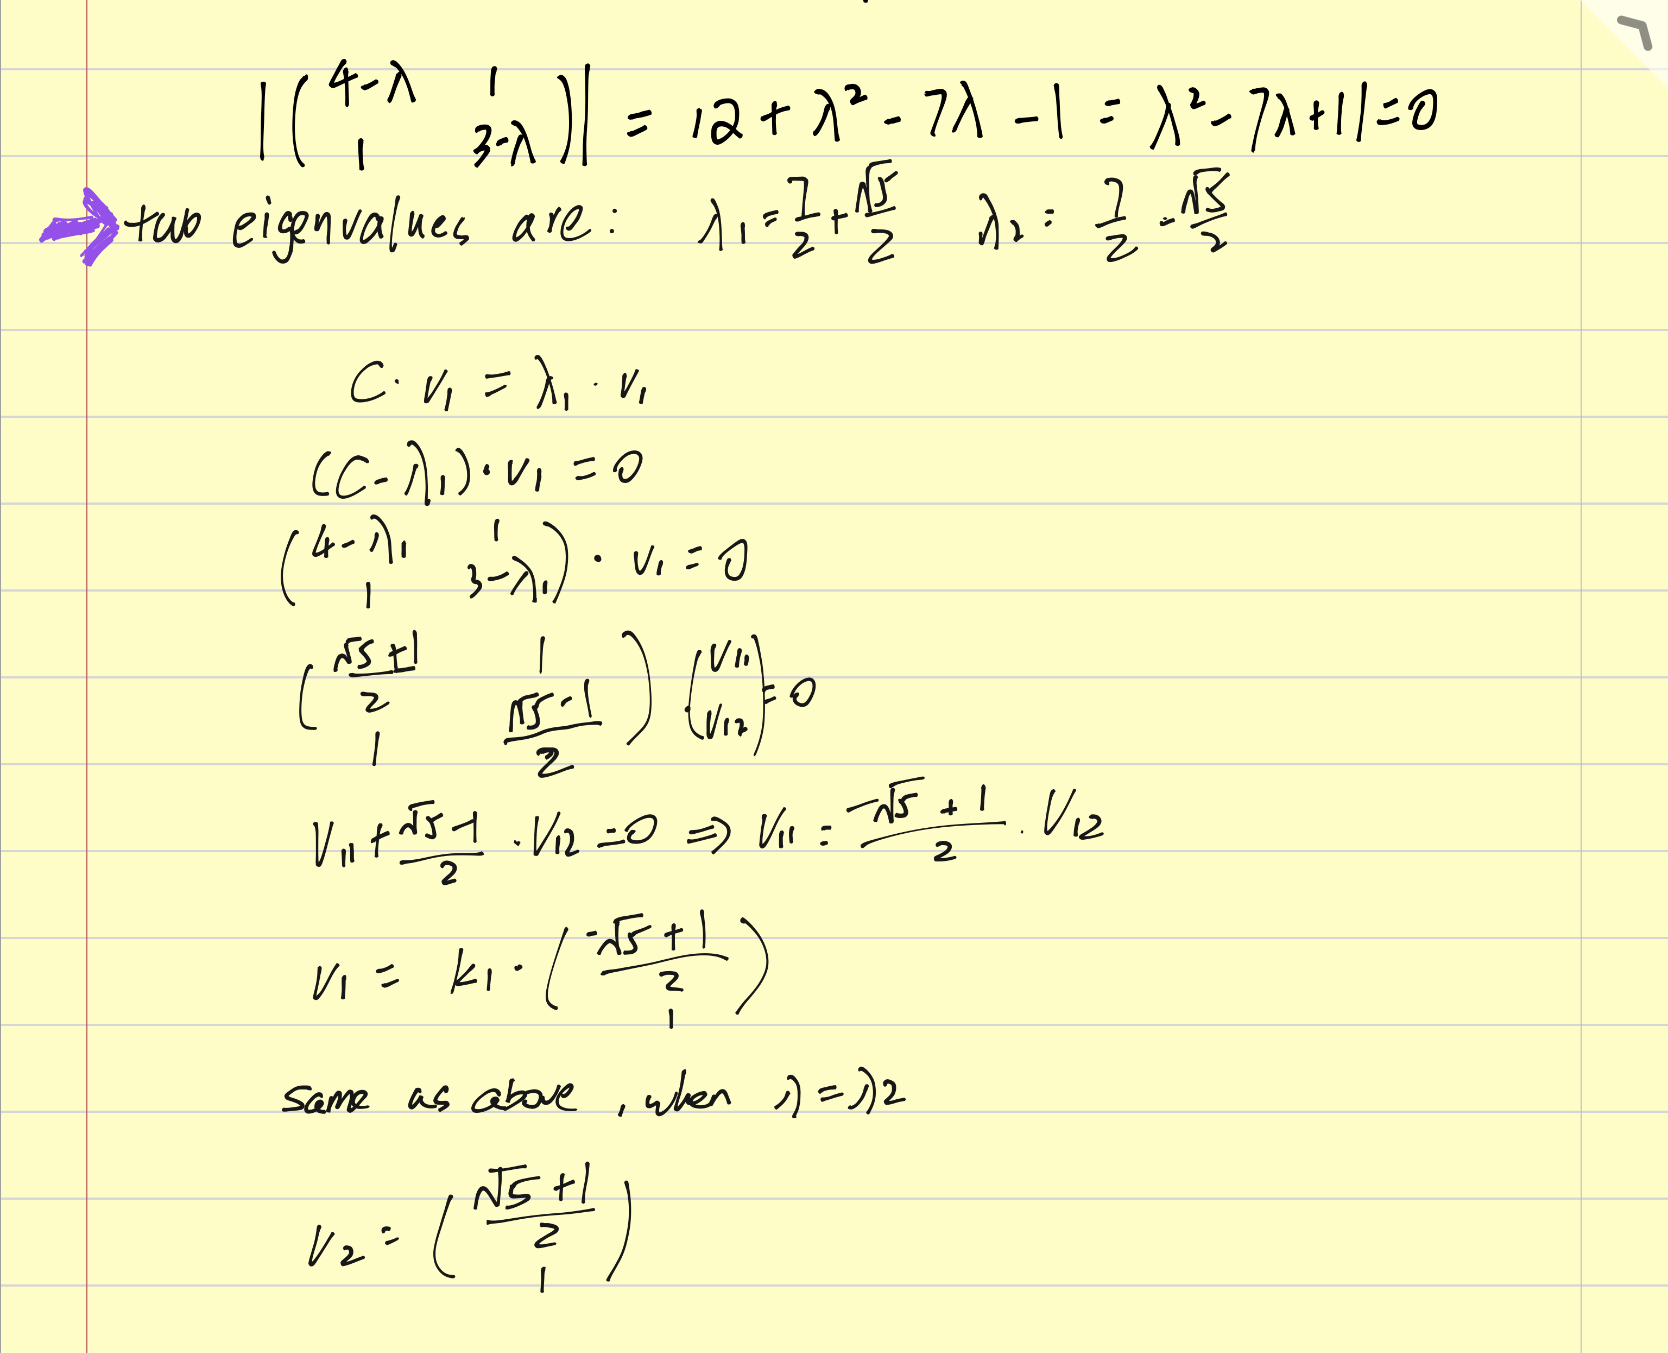 |(4-λ 1
1 3-λ)| = 12 + λ² - 7λ - 1 = λ² - 7λ + 11 = 0
two eigenvalues are: λ₁ = 7/2 + √5/2 λ₂ = 7/2 - √5/2
C · v₁ = λ₁ · v₁
(C - λ₁) · v₁ = 0
(4-λ₁ 1
1 3-λ₁) · v₁ = 0
((√5+1)/2 1
1 (√5-1)/2) (V₁₁
V₁₂) = 0
V₁₁ + (√5-1)/2 · V₁₂ = 0 ⇒ V₁₁ = (-√5+1)/2 · V₁₂
V₁ = k₁ · ((-√5+1)/2
1)
same as above, when λ = λ2
V₂ = ((√5+1)/2
1)